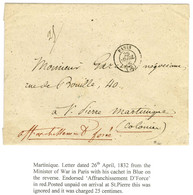 PARIS
Monsieur
Par
négociant
rue de Bouillé, 40
à St. Pierre Martinique
(Colonies)
affranchissement d'
Martinique. Letter dated 26th April, 1832 from the
Minister of War in Paris with his cachet in Blue on
the reverse. Endorsed 'Affranchissement D'Force'
in red.Posted unpaid on arrival at St.Pierre this was
ignored and it was charged 25 centimes.